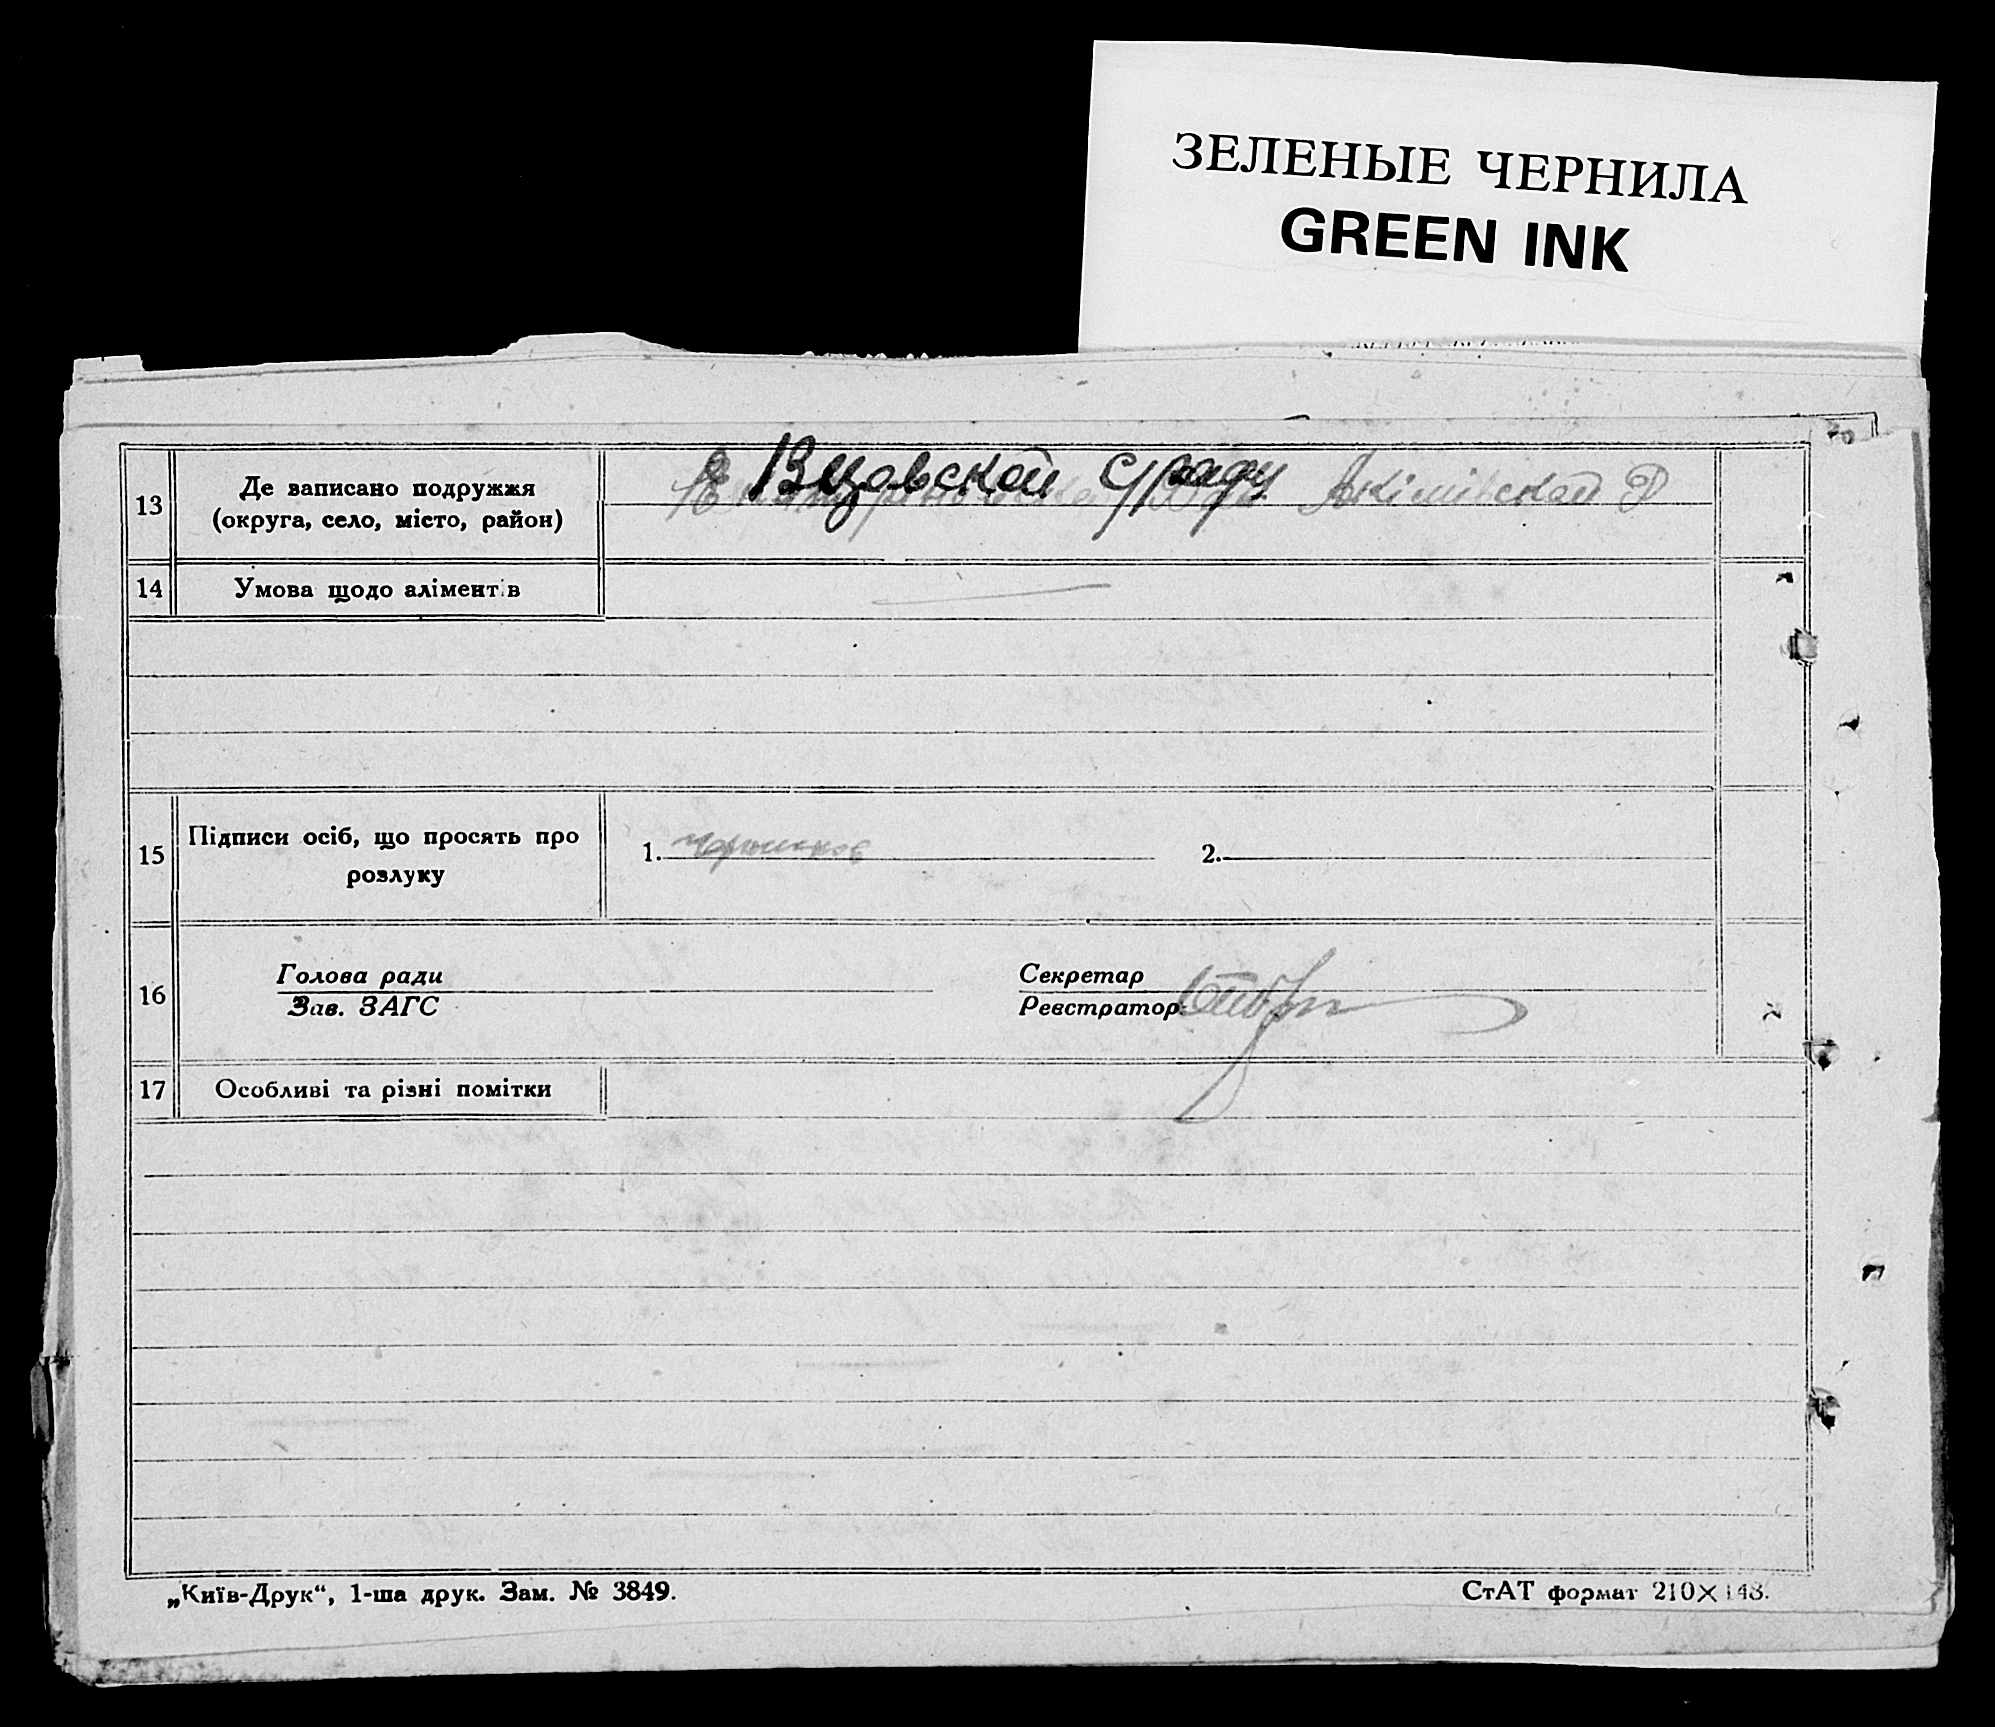 ЗЕЛЕНЫЕ ЧЕРНИЛА
GREEN INK
13
Де записано подружжя
(округа, село, місто, район)
сради Акімівской Р
14
Умова щодо аліментів
15
Підписи осіб, що просять про
розлуку
1.
2.
16
Голова ради
Зав. ЗАГС
Секретар
Реєстратор:
17
Особливі та різні помітки
„Київ-Друк“, 1-ша друк. Зам. № 3849.
СтАТ формат 210×148.